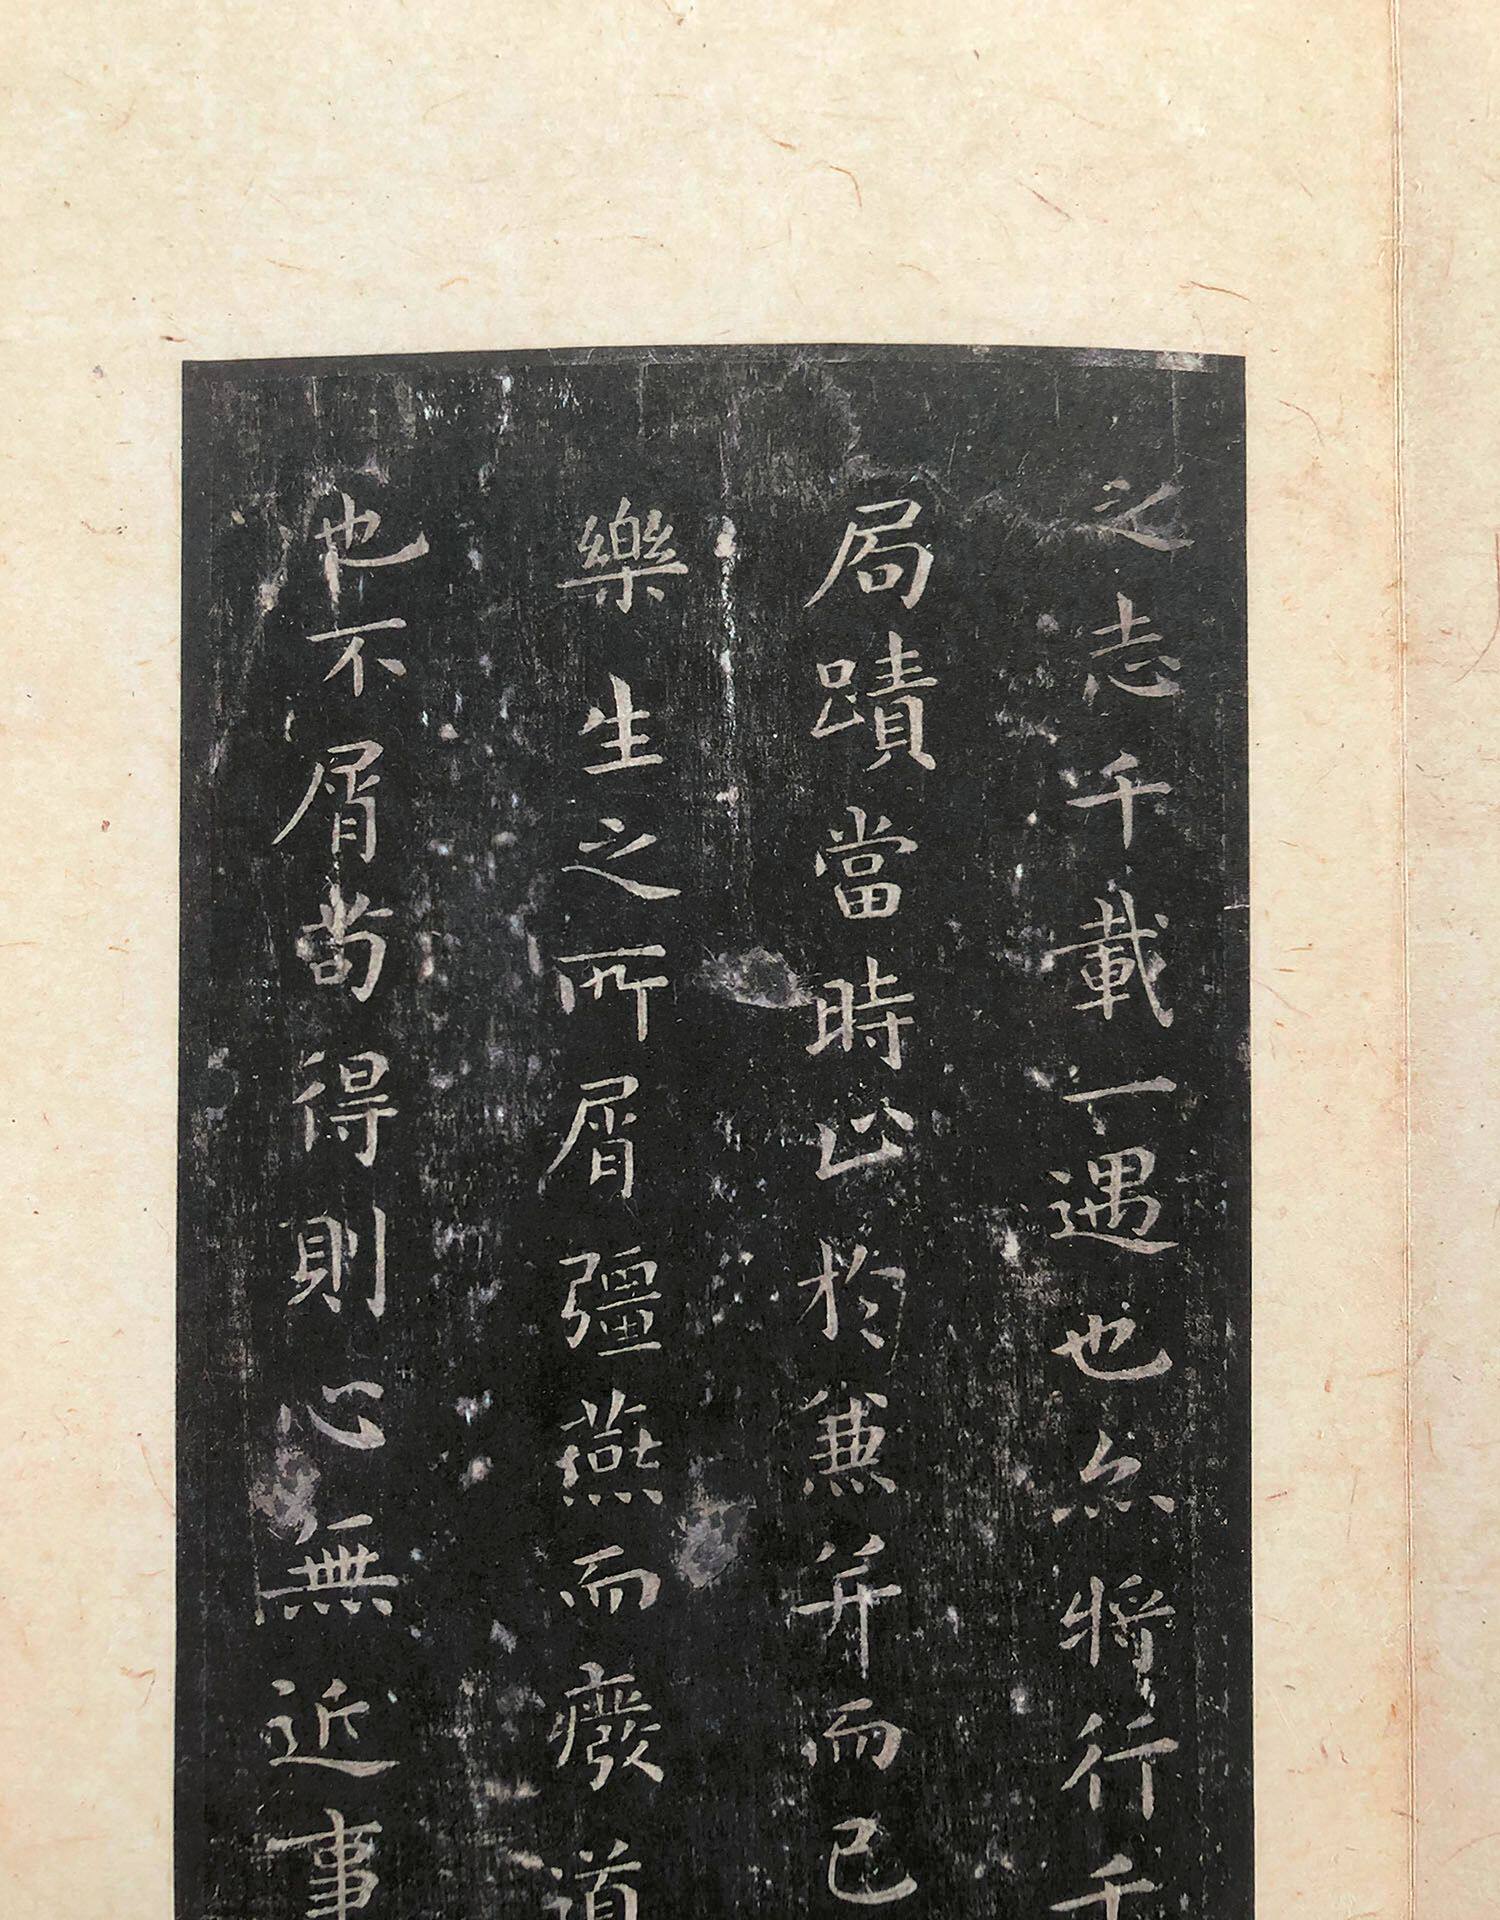 之志千載一遇也亦將行千
局蹟當時止於兼并而已
樂生之所屑彊燕而廢道
也不屑苟得則心無近事